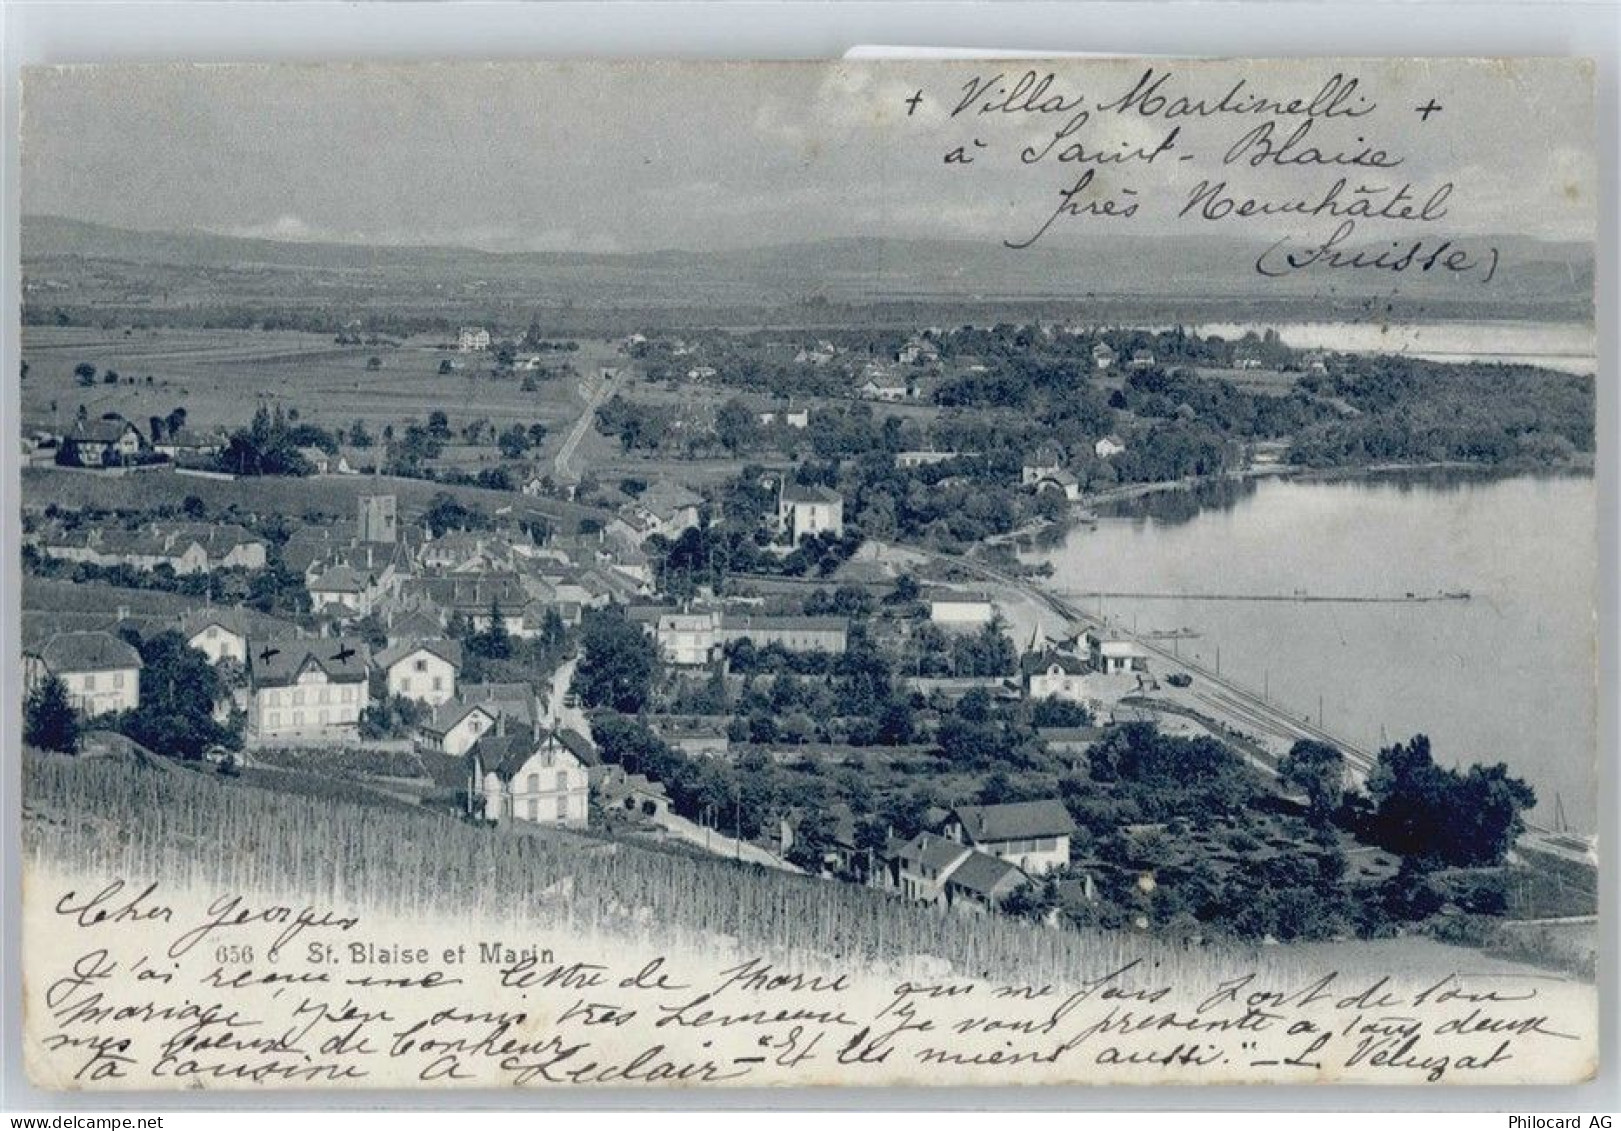 + Villa Martinelli +
à Saint-Blaise
près Neuchâtel
(Suisse)
Cher Georges
656 c St. Blaise et Marin
J'ai reçu une lettre de qui me fais part de ton
mariage j'en suis très je vous présente à tous deux
mes voeux de Bonheur "Et les miens aussi." –
Ta cousine A Leclair –
Philocard AG